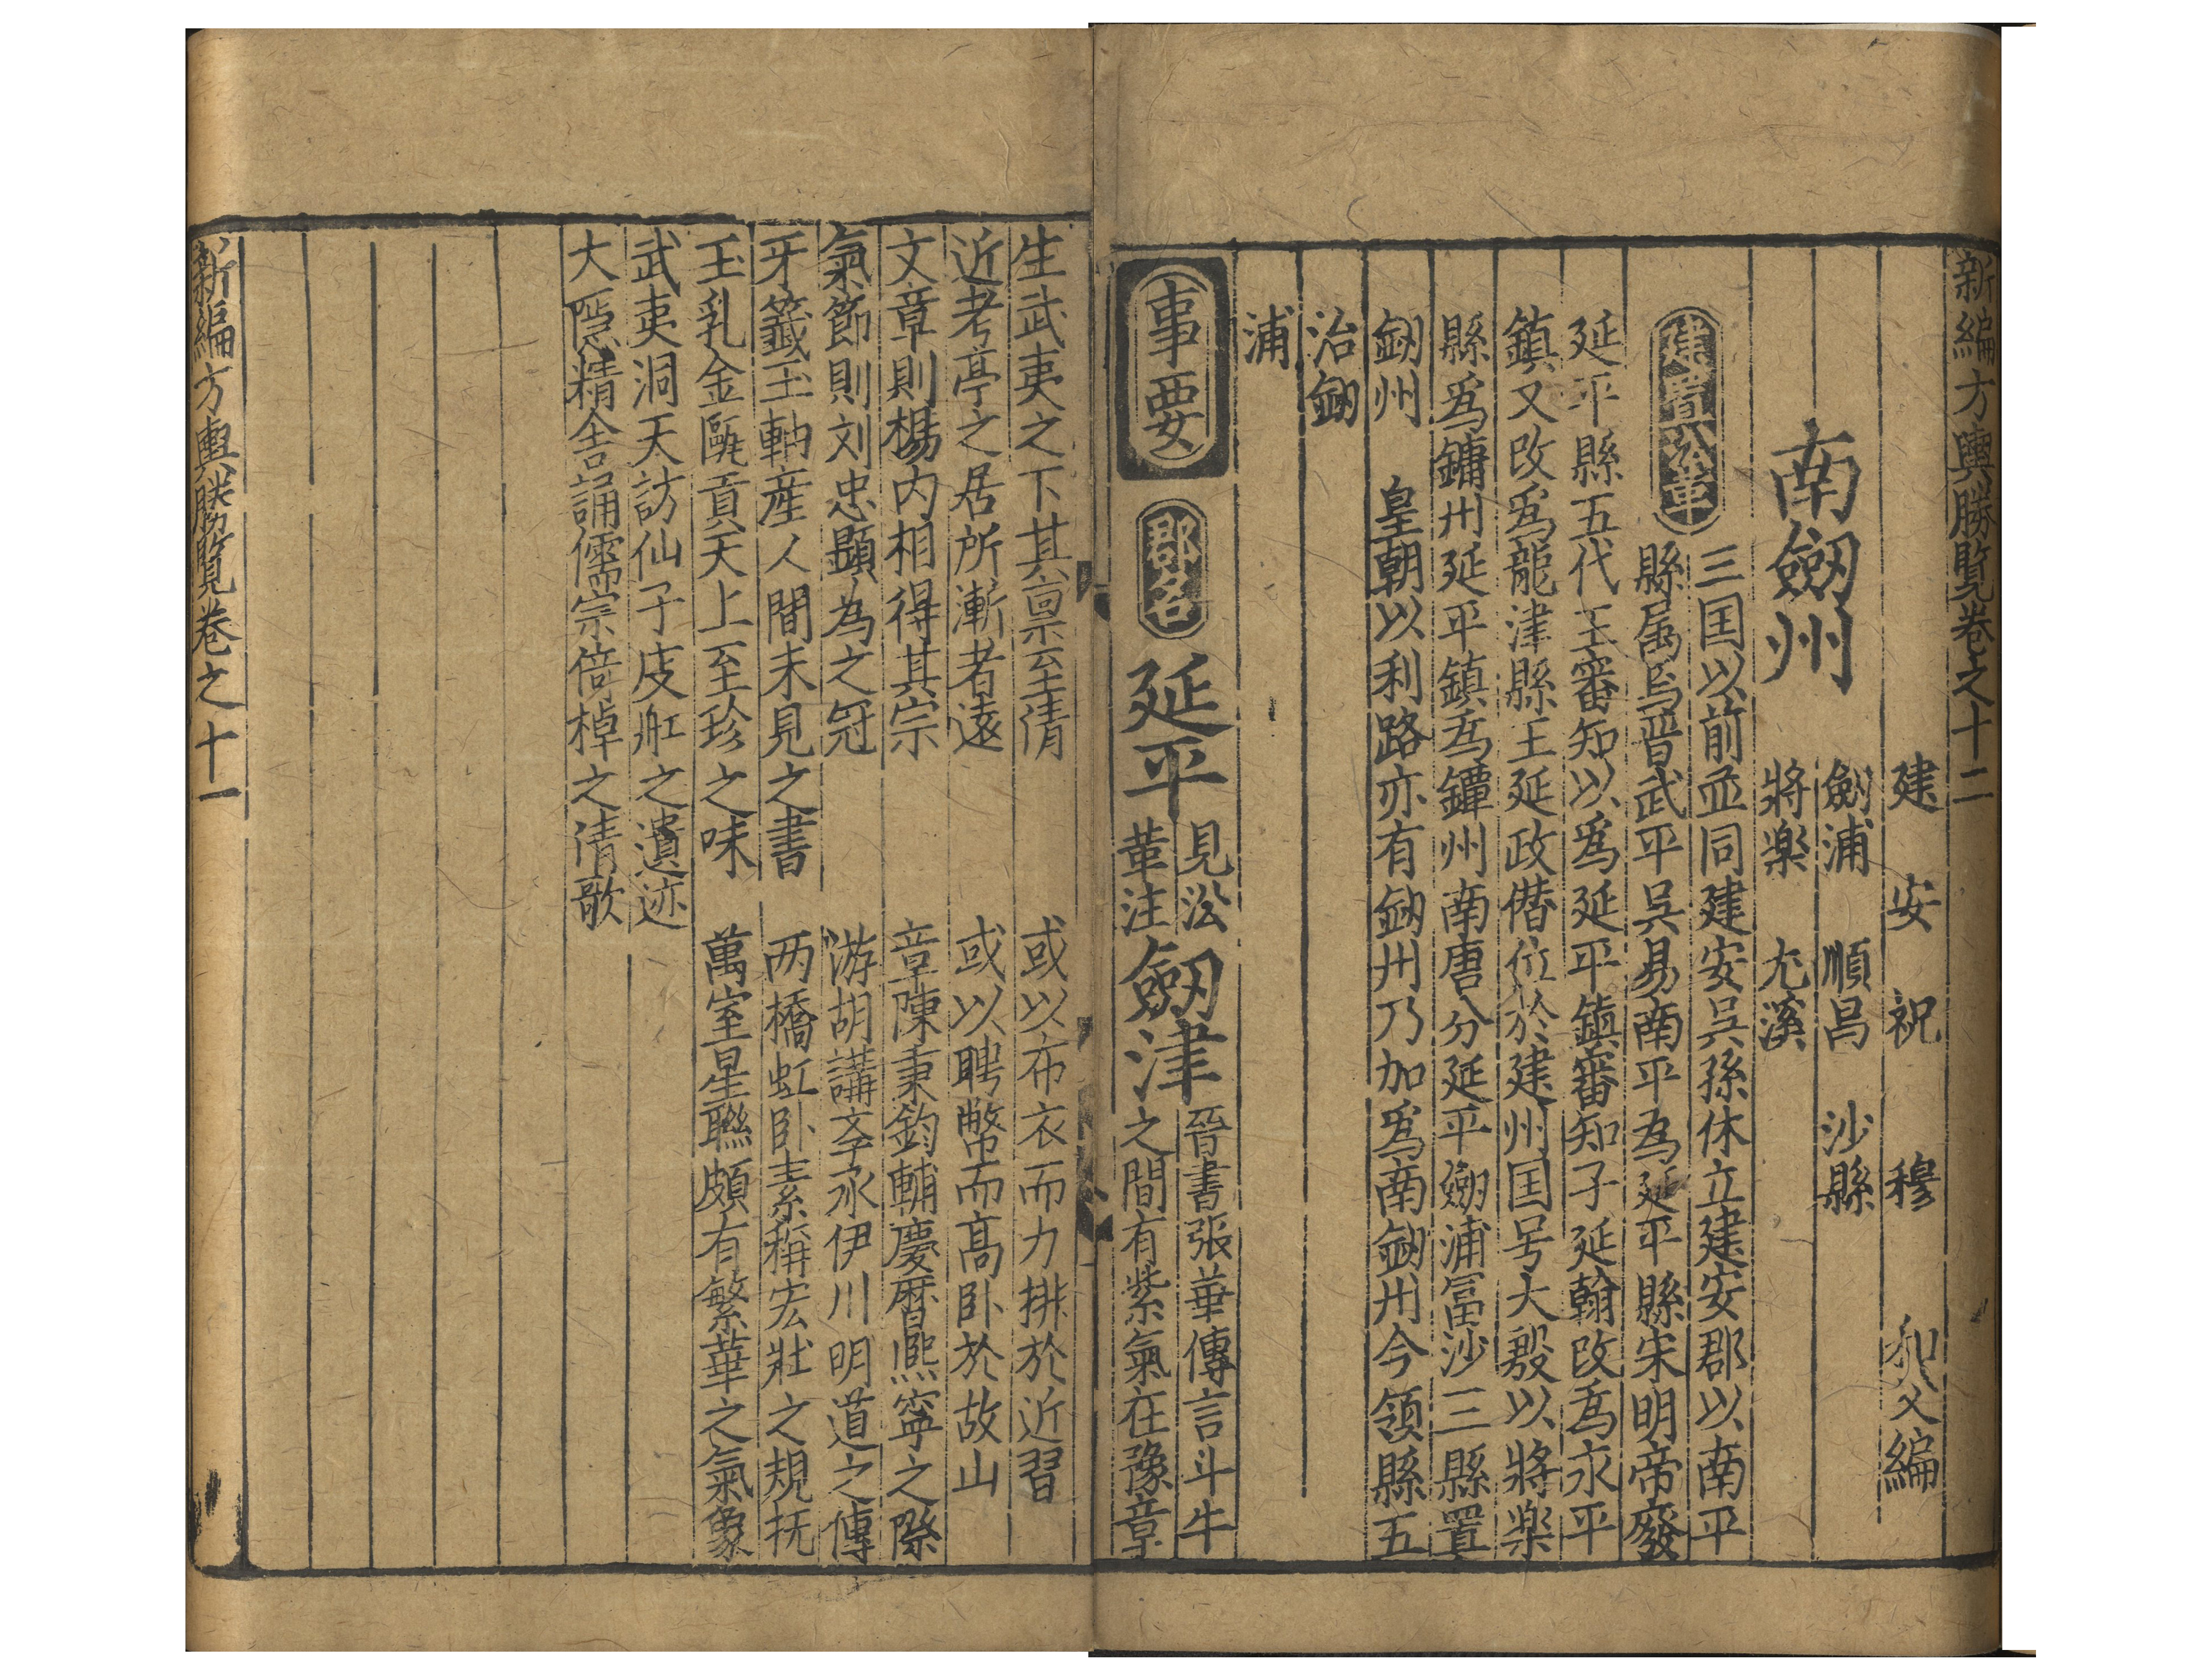 新編方輿勝覽卷之十二
建安祝穆和父編
南劒州
劍浦 順昌 沙縣
將楽 尤溪
建置沿革
三国以前並同建安吳孫休立建安郡以南平
縣属焉晋武平吳易南平為延平縣宋明帝廢
延平縣五代王審知以爲延平鎮審知子延翰改爲永平
鎮又改爲龍津縣王延政僣位於建州国号大殷以將楽
縣爲鏞州延平鎮爲鐔州南唐分延平劒浦冨沙三縣置
劒州 皇朝以利路亦有劒州乃加爲南劒州今領縣五
治劒
浦
事要
郡名
延平
見沿
革注
劒津
晉書張華傳言斗牛
之間有紫氣在豫章
生武夷之下其禀至清 或以布衣而力排於近習
近考亭之居所漸者遠 或以聘幣而髙卧於故山
文章則楊内相得其宗 章陳秉鈞輔慶曆熈寕之際
氣節則刘忠顕為之冠 游胡講斈承伊川明道之傳
牙籤玉軸産人間未見之書 两橋虹卧素稱宏壮之規抚
玉乳金甌貢天上至珍之味 萬室星聯頗有繁華之氣象
武夷洞天訪仙子庋舡之遺迹
大隠精舎誦儒宗倚棹之清歌
新編方輿勝覽卷之十一